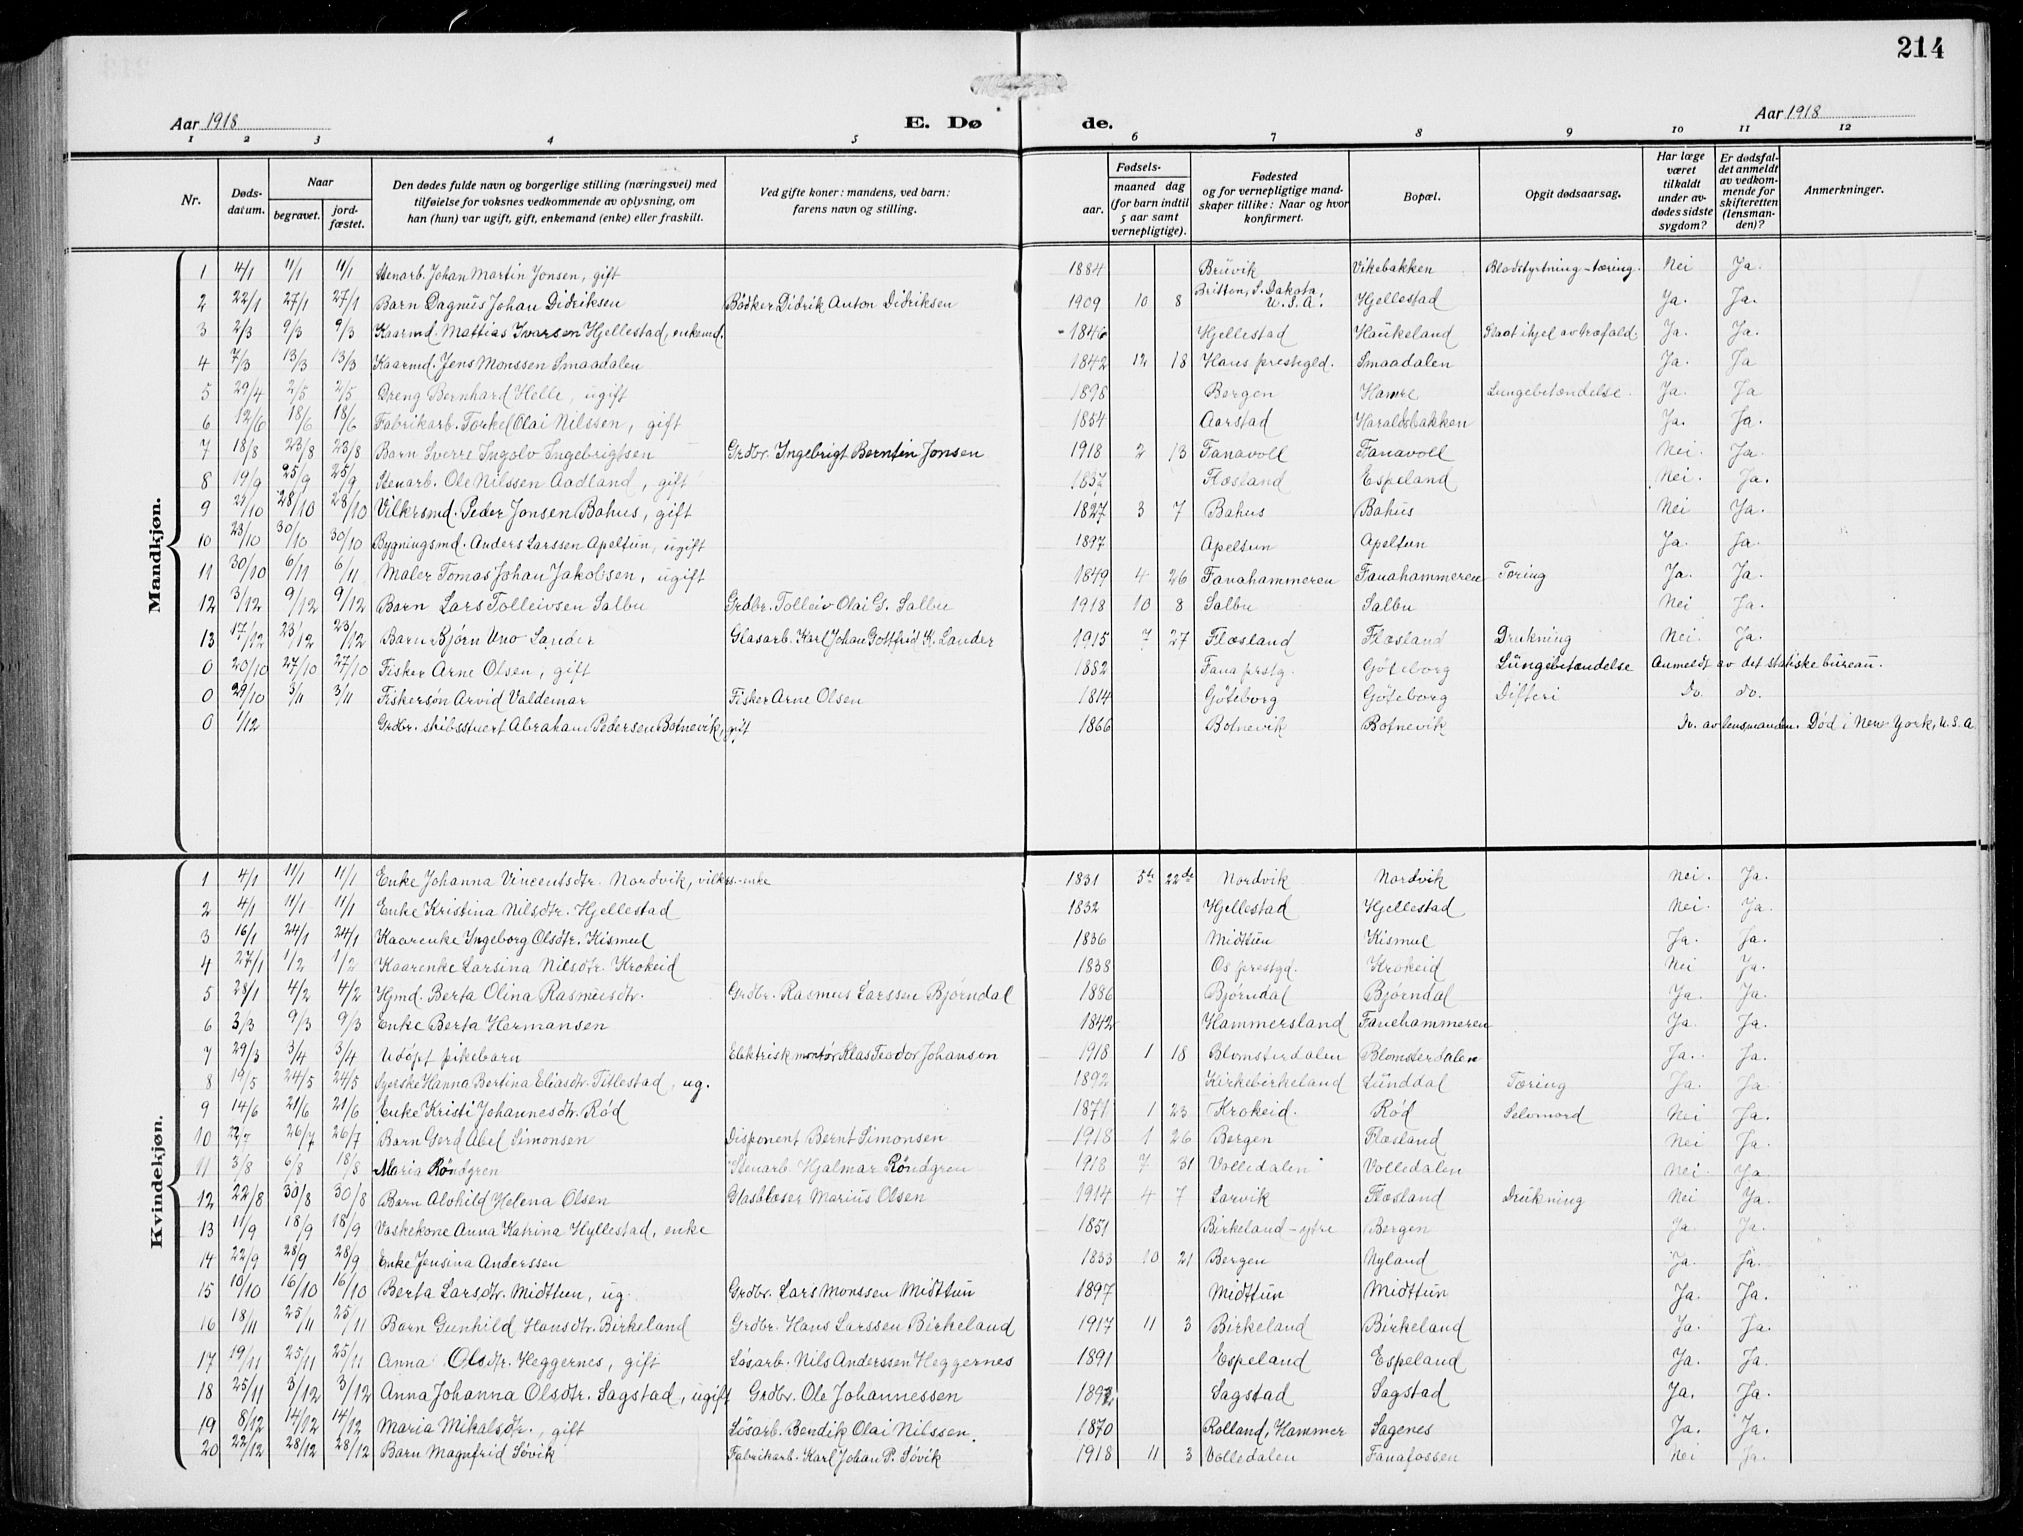 214
Aar 1918 E. Dø de. Aar 1918
1 2 3 4 5 6 7 8 9 10 11 12
Nr. Døds-datum. Naar begravet. jord-fæstet. Den dødes fulde navn og borgerlige stilling (næringsvei) med tilføielse for voksnes vedkommende av oplysning, om han (hun) var ugift, gift, enkemand (enke) eller fraskilt. Ved gifte koner: mandens, ved barn: farens navn og stilling. Fødsels- aar. maaned dag (for barn indtil 5 aar samt vernepligtige). Fødested og for vernepligtige mandskaper tillike: Naar og hvor konfirmert. Bopæl. Opgit dødsaarsag. Har læge været tilkaldt under av-dødes sidste sygdom? Er dødsfal-det anmeldt av vedkom-mende for skifteretten (lensman-den)? Anmerkninger.
Mandkjøn.
1 4/1 11/1 11/1 Stenarb. Johan Martin Jonsen, gift 1884 Bruvik Vikebakken Blodstyrtning-tæring. Nei Ja.
2 22/1 27/1 27/1 Barn Dagnus Johan Didriksen Bødker Didrik Anton Didriksen 1909 10 8 Britton, S. Dakota, U.S.A. Hjellestad Ja. Ja.
3 2/3 9/3 9/3 Kaarmd. Mattias Ivarsen Hjellestad, enkemd. 1846 Hjellestad Haukeland Slaat ihjel av træfald. Ja. Ja.
4 7/3 13/3 13/3 Kaarmd. Jens Monssen Smaadalen 1842 12 18 Haus prestegld. Smaadalen Ja. Ja
5 29/4 2/5 2/5 Dreng Bernhard Helle, ugift 1898 Bergen Hamre Lungebetændelse. Ja. Ja
6 12/6 18/6 18/6 Fabrikarb. Torkel Olai Nilssen, gift 1854 Aarstad Haraldsbakken Ja. Ja.
7 18/8 23/8 23/8 Barn Sverre Ingolv Ingebrigtsen Grdbr. Ingebrigt Berntin Jonsen 1918 2 13 Fanavoll Fanavoll Nei. Ja.
8 19/9 25/9 25/9 Stenarb. Ole Nilssen Aadland, gift 1837 Flæsland Espeland Nei. Ja.
9 22/10 28/10 28/10 Vilkersmd. Peder Jonsen Bahus, gift 1827 3 7 Bahus Bahus Nei Ja.
10 23/10 30/10 30/10 Bygningsmd. Anders Larssen Apeltun, ugift 1897 Apeltun Apeltun Ja. Ja.
11 30/10 6/11 6/11 Maler Tomas Johan Jakobsen, ugift 1849 4 26 Fanahammeren Fanahammeren Tæring Ja. Ja.
12 3/12 9/12 9/12 Barn Lars Tolleivsen Salbu Grdbr. Tolleiv Olai G. Salbu 1918 10 8 Salbu Salbu Nei Ja.
13 17/12 23/12 23/12 Barn Bjørn Uno Sander Glasarb. Karl Johan Gottfrid K. Sander 1915 7 27 Flæsland Flæsland Drukning Nei. Ja.
0 20/10 27/10 27/10 Fisker Arne Olsen, gift 1882 Fana prstg. Göteborg Lungebetændelse Anmeldt av det statiske bureau.
0 29/10 3/11 3/11 Fiskersøn Arvid Valdemar Fisker Arne Olsen 1814 Göteborg Göteborg Difteri Do. do.
0 1/12 Grdbr. skibsstuert Abraham Pedersen Botnevik, gift 1866 Botnevik Botnevik Do. av lensmanden. Død i New York, U.S.A.
Kvindekjøn.
1 4/1 11/1 11/1 Enke Johanna Vincentsdtr. Nordvik, vilkrs.-enke 1831 5te 22de Nordvik Nordvik Nei. Ja.
2 4/1 11/1 11/1 Enke Kristina Nilsdtr. Hjellestad 1832 Hjellestad Hjellestad Nei. Ja.
3 16/1 24/1 24/1 Kaarenke Ingeborg Olsdtr. Kismul 1836 Midttun Kismul Ja. Ja.
4 27/1 1/2 1/2 Kaarenke Larsina Nilsdtr. Krokeid 1838 Os prestgd. Krokeid Nei Ja.
5 28/1 4/2 4/2 Hjmd. Berta Olina Rasmusdtr. Grdbr. Rasmus Larssen Bjørndal 1886 Bjørndal Bjørndal Ja. Ja.
6 3/3 9/3 9/3 Enke Berta Hermansen 1842 Hammersland Fanehammeren Ja. Ja.
7 29/3 3/4 3/4 Udøpt pikebarn Elektrisk montør Klas Teodor Johanson 1918 1 18 Blomsterdalen Blomsterdalen Ja. Ja.
8 19/5 24/5 24/5 Syerske Hanna Bertina Eliasdtr. Titlestad, ug. 1892 Kirkebirkeland Lunddal Tæring Ja. Ja
9 14/6 21/6 21/6 Enke Kristi Johannesdtr. Rød 1871 1 23 Krokeid. Rød Selvmord Nei Ja.
10 22/7 26/7 26/7 Barn Gerd Abel Simonsen Disponent Bernt Simonsen 1918 1 26 Bergen Flæsland Nei Ja.
11 3/8 6/8 18/8 Maria Röndgren Stenarb. Hjalmar Röndgren 1918 7 31 Volledalen Volledalen Nei. Ja.
12 22/8 30/8 30/8 Barn Alvhild Helena Olsen Glasblæser Marius Olsen 1914 4 7 Larvik Flæsland Drukning Nei Ja.
13 11/9 18/9 18/9 Vaskekone Anna Katrina Hyllestad, enke 1851 Birkeland-ytre Bergen Ja. Ja.
14 22/9 28/9 28/9 Enke Jensina Anderssen 1833 10 21 Bergen Nyland Ja. Ja.
15 10/10 16/10 16/10 Berta Larsdtr. Midttun, ug. Grdbr. Lars Monssen Midttun 1897 Midttun Midttun Ja. Ja.
16 18/11 25/11 25/11 Barn Gunhild Hansdtr. Birkeland Grdbr. Hans Larssen Birkeland 1917 11 3 Birkeland Birkeland Ja. Ja.
17 19/11 25/11 25/11 Anna Olsdtr. Heggernes, gift Løsarb. Nils Anderssen Heggernes 1891 Espeland Espeland Ja. Ja.
18 25/11 3/12 3/12 Anna Johanna Olsdtr. Sagstad, ugift Grdbr. Ole Johannessen Sagstad Sagstad Ja. Ja.
19 8/12 14/12 14/12 Maria Mikalsdtr., gift Løsarb. Bendik Olai Nilssen. 1870 Rolland, Hammer Sagenes Ja. Ja.
20 22/12 28/12 28/12 Barn Magnfrid Søvik Fabrikarb. Karl Johan P. Søvik 1918 11 3 Volledalen Fanafossen Nei Ja.